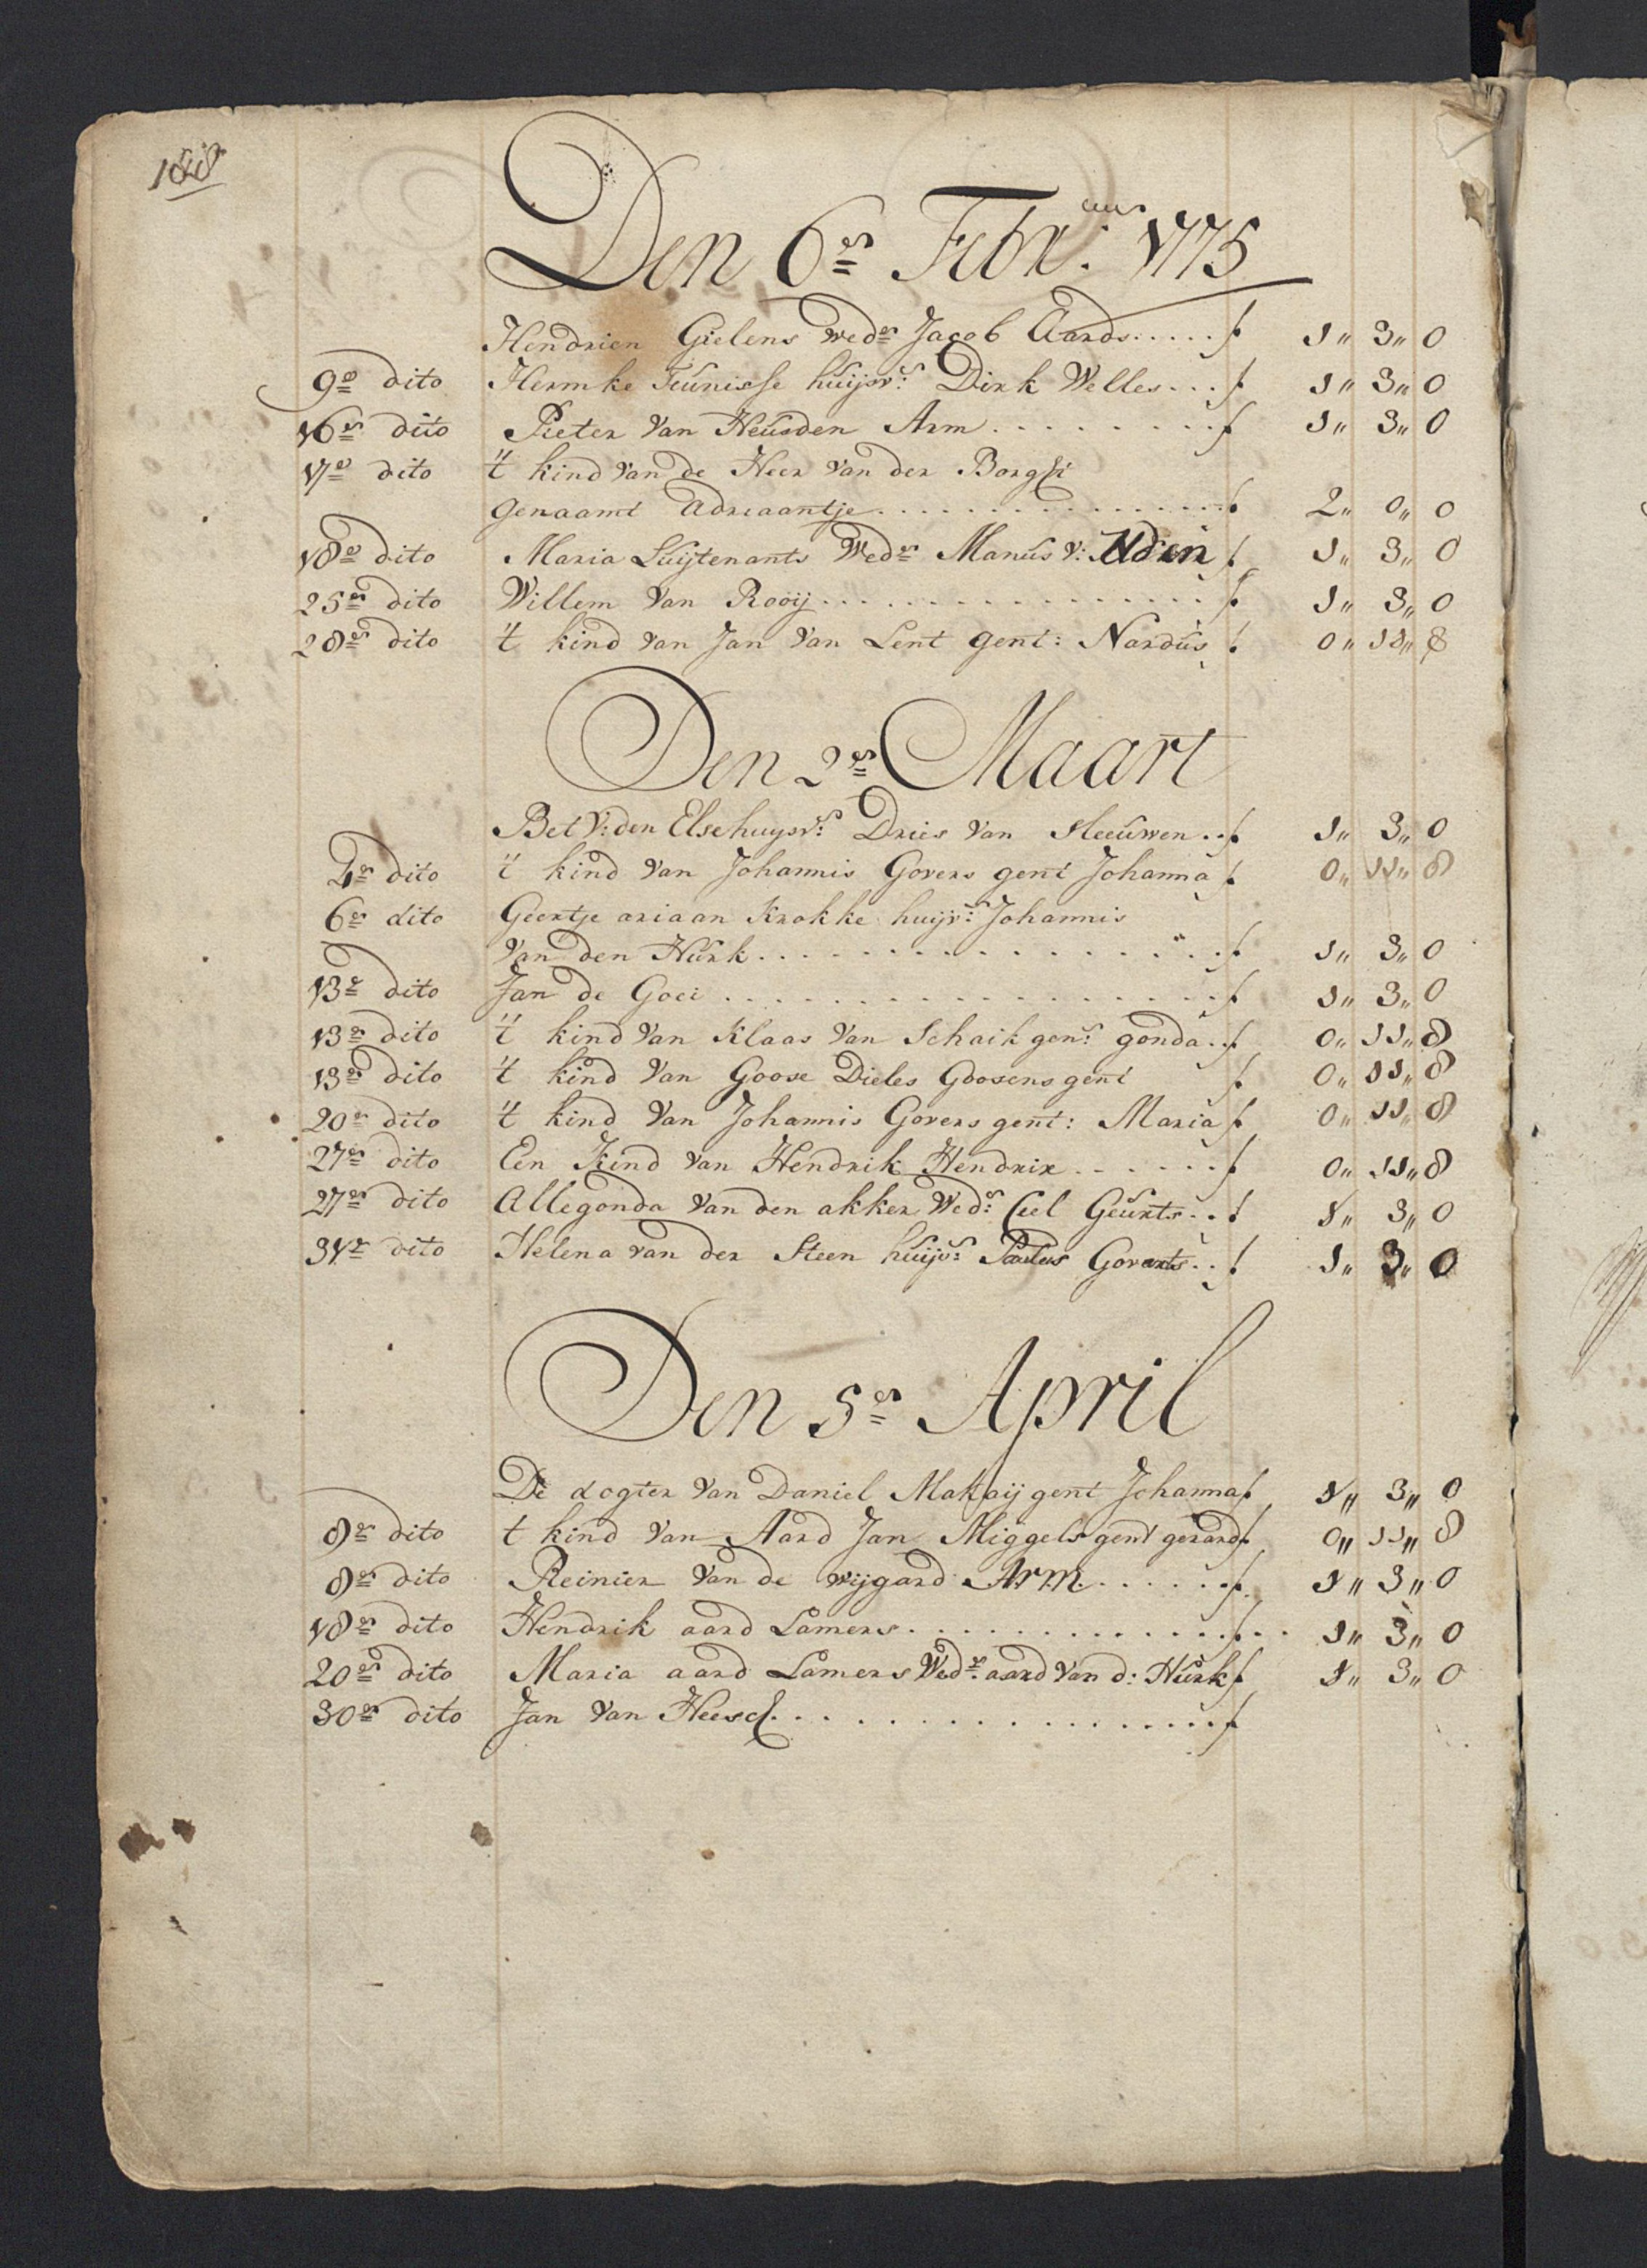 Den 6en Febr: 1775
Hendrien Gielens wedr Jacob Aards ..... f 1" 3" 0
9e dito Hermke Teunisse huijsvr: Dirk Welles ... f 1" 3" 0
16en dito Pieter Van Heusden Arm ......... f 1" 3" 0
17e dito 't kind Van de Heer Van der Borght
genaamt Adriaantje ................ f 2" 0" 0
18e dito Maria Luijtenants Wedr Manus V: Uden f 1" 3" 0
25en dito Willem Van Rooij ................. f 1" 3" 0
28en dito 't kind van Jan Van Lent gent: Nardus f 0" 11" 8
Den 2en Maart
Bet V: den Else huysvr: Dries Van Sleeuwen .. f 1" 3" 0
4en dito 't kind Van Johannis Govers gent Johanna f 0" 11" 8
6en dito Geertje ariaan Krokke huijvr: Johannis
Van den Hurk ................ f 1" 3" 0
13e dito Jan de Goei .................. f 1" 3" 0
13en dito 't kind Van Klaas Van Schaik gent: gonda .. f 0" 11" 8
13en dito 't kind Van Goose Dieles Goosens gent f 0" 11" 8
20en dito 't kind Van Johannis Govers gent: Maria f 0" 11" 8
27en dito Een Kind Van Hendrik Hendrix ...... f 0" 11" 8
27en dito Allegonda Van den akker Wedr: Ceel Geurts .. f 1" 3" 0
31e dito Helena van der Steen huijvr: Paulus Goverts .. f 1" 3" 0
Den 5en April
De dogter Van Daniel Makaij gent Johanna f 1" 3" 0
8en dito t kind Van Aard Jan Miggels gent gerard f 0" 11" 8
8en dito Reinier Van de wijgard Arm ...... f 1" 3" 0
18en dito Hendrik aard Lamers .............. f 1" 3" 0
20en dito Maria aard Lamers Wedr: aard Van d: Hurk f 1" 3" 0
30en dito Jan Van Heesch ................. f